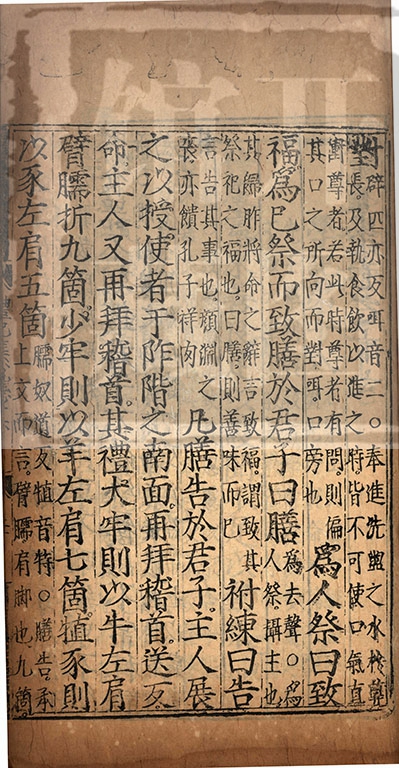 對辟匹亦反咡音二○奉進洗盥之水於尊
長及執食飲以進之時皆不可使口氣直
衝尊者若此時尊者有問則偏
其口之所向而對咡口旁也爲人祭曰致
福爲已祭而致膳於君子曰膳爲去聲○爲
人祭攝主也
其歸胙將命之辭言致福謂致其
祭祀之福也曰膳則善味而已祔練曰告
言告其事也顏淵之
喪亦饋孔子祥肉凡膳告於君子主人展
之以授使者于阼階之南面再拜稽首送反
命主人又再拜稽首其禮大牢則以牛左肩
臂臑折九箇少牢則以羊左肩七箇犆豕則
以豕左肩五箇臑奴道反犆音特○膳告承
上文而言臂臑肩脚也九箇